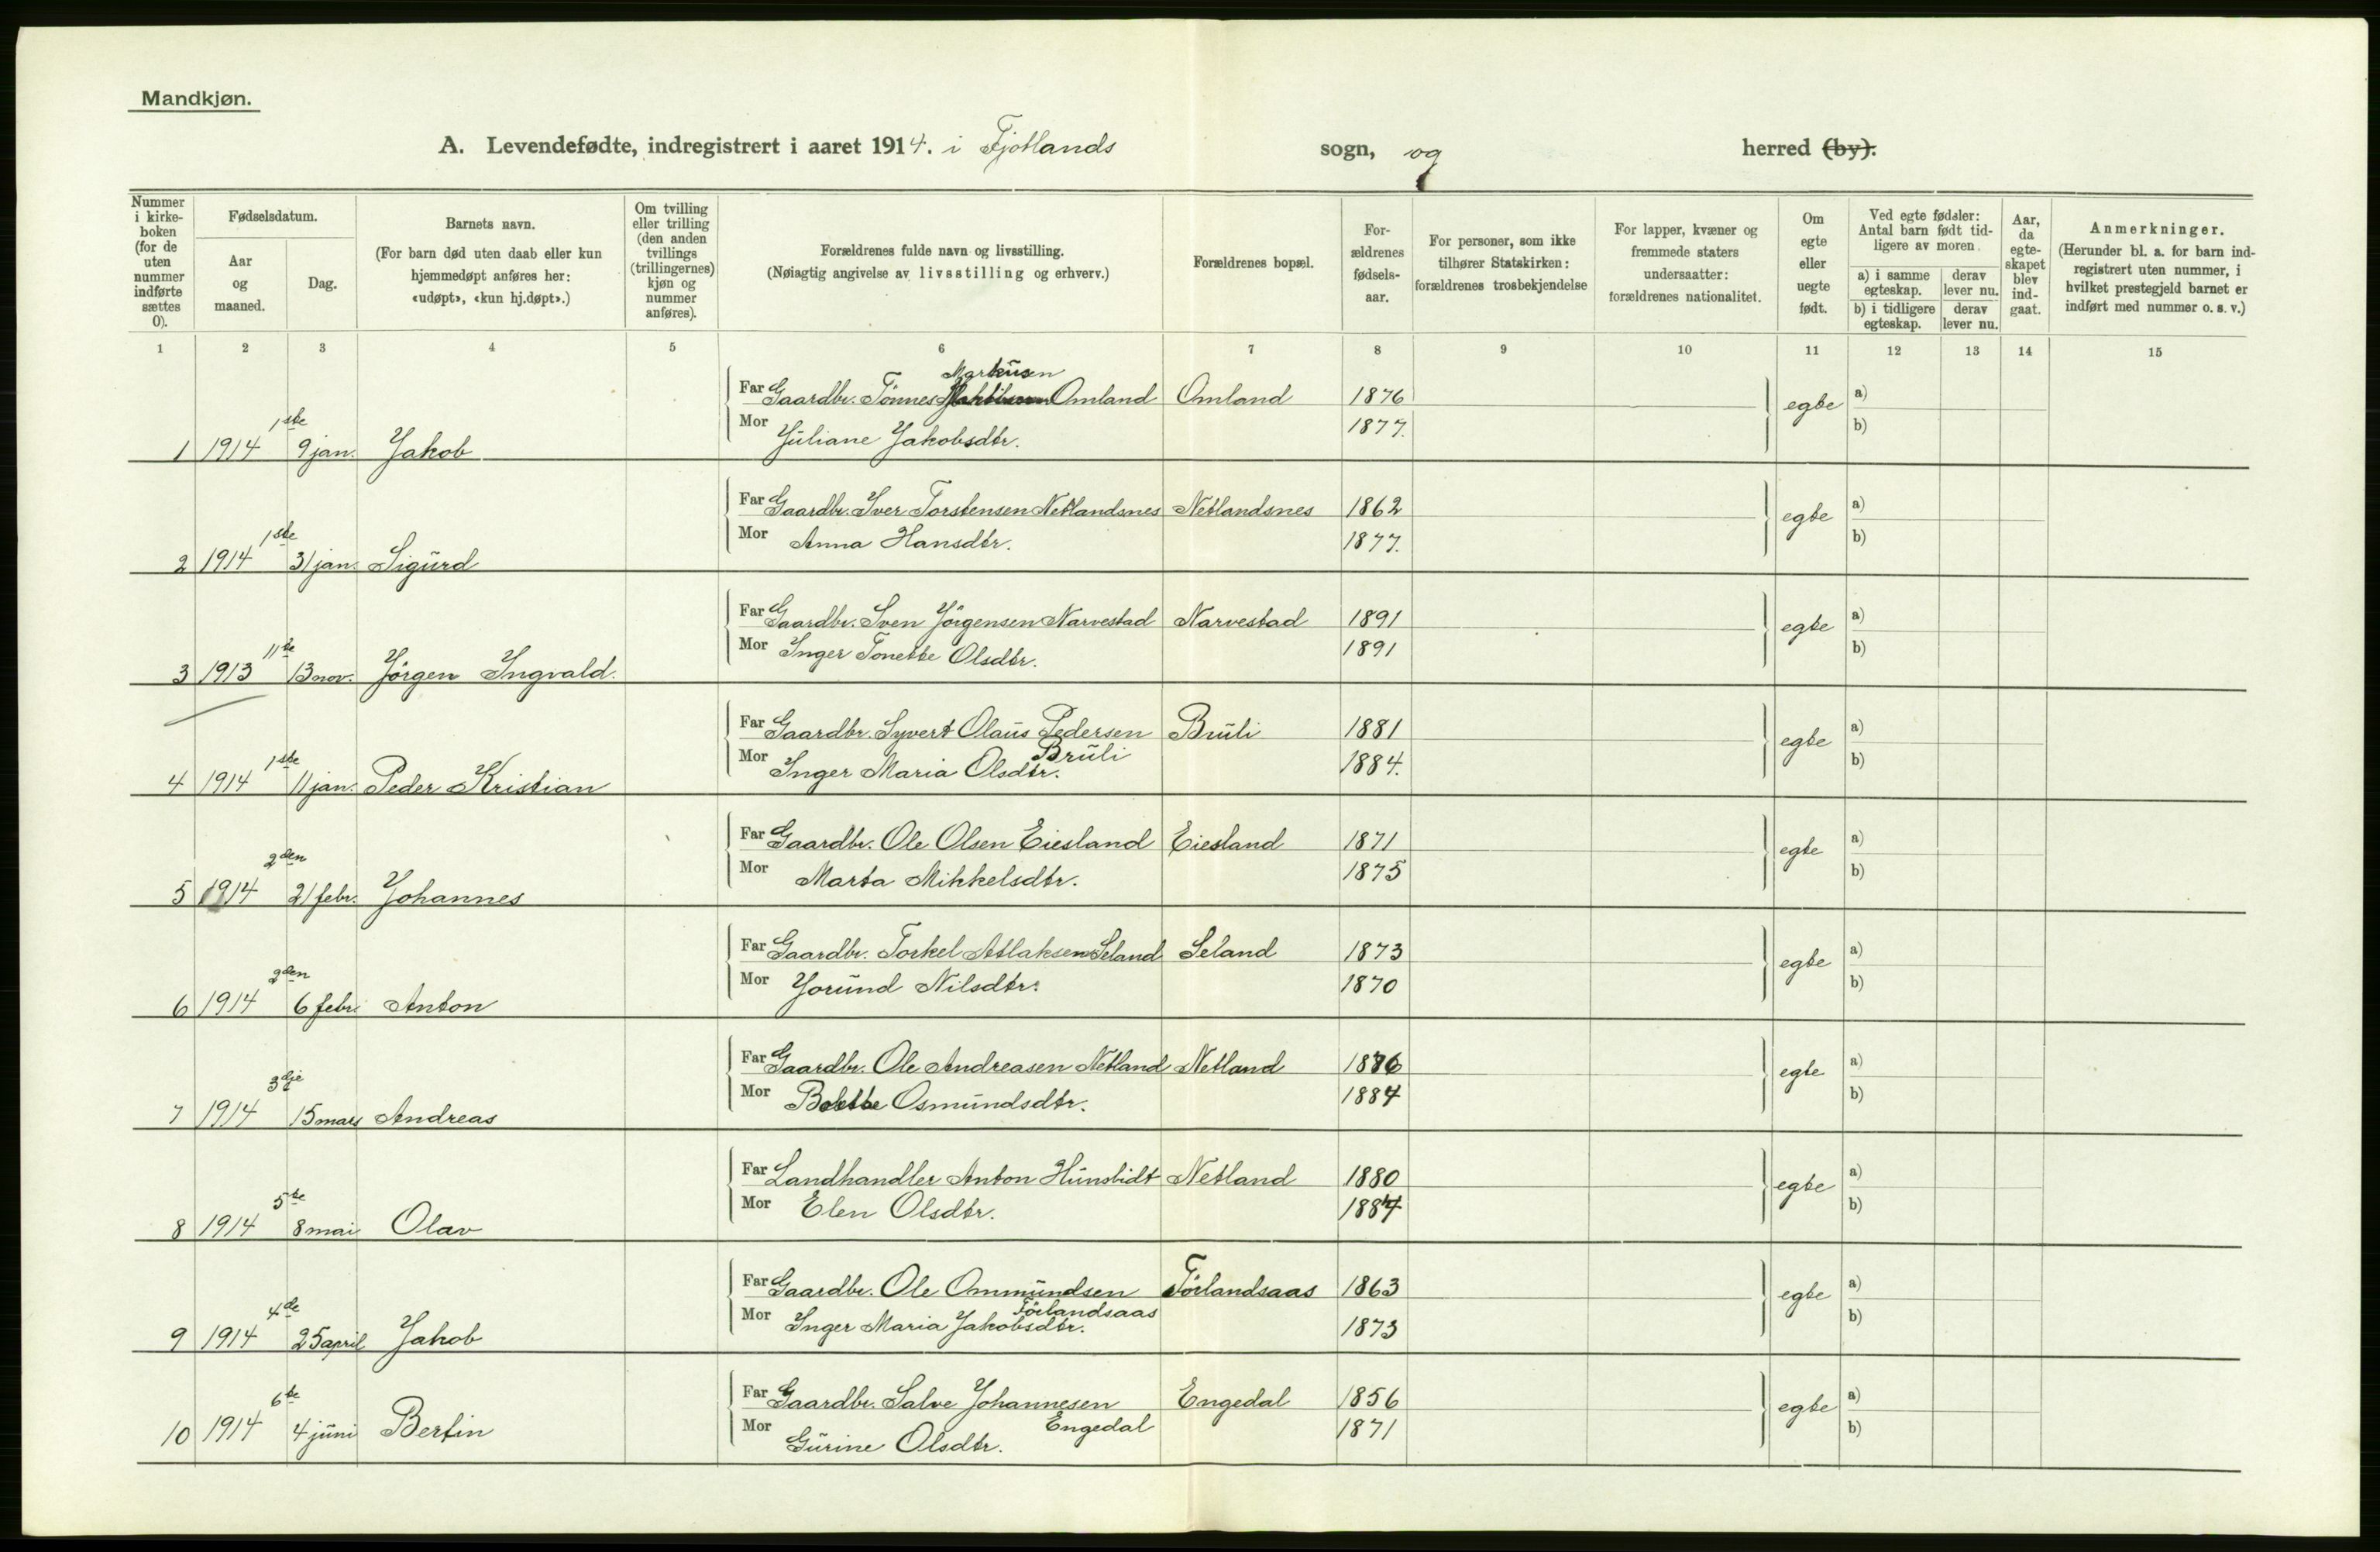 Mandkjøn.
A. Levendefødte, indregistrert i aaret 1914. i Fjotlands sogn, og herred (by).
Nummer i kirke-boken (for de uten nummer indførte sættes 0).
Fødselsdatum.
Aar og maaned.
Dag.
Barnets navn.
(For barn død uten daab eller kun hjemmedøpt anføres her: «udøpt», «kun hj.døpt».)
Om tvilling eller trilling (den anden tvillings (trillingernes) kjøn og nummer anføres).
Forældrenes fulde navn og livsstilling.
(Nøiagtig angivelse av livsstilling og erhverv.)
Forældrenes bopæl.
For-ældrenes fødsels-aar.
For personer, som ikke tilhører Statskirken: forældrenes trosbekjendelse
For lapper, kvæner og fremmede staters undersaatter: forældrenes nationalitet.
Om egte eller uegte født.
Ved egte fødsler: Antal barn født tid-ligere av moren.
a) i samme egteskap.
derav lever nu.
b) i tidligere egteskap.
derav lever nu.
Aar, da egte-skapet blev ind-gaat.
Anmerkninger.
(Herunder bl. a. for barn ind-registrert uten nummer, i hvilket prestegjeld barnet er indført med nummer o. s. v.)
1 2 3 4 5 6 7 8 9 10 11 12 13 14 15
Markusen
Far Gaardbr. Tönnes Omland Omland 1876 egte a)
Mor Juliane Jakobsdtr. 1877. b)
1ste
1 1914 9 jan. Jakob
Far Gaardbr. Iver Torstensen Netlandsnes Netlandsnes 1862 egte a)
Mor Anna Hansdtr. 1877. b)
1ste
2 1914 31 jan. Sigurd
Far Gaardbr. Sven Jörgensen Narvestad Narvestad 1891 egte a)
Mor Inger Tonette Olsdtr. 1891 b)
11te
3 1913 13 nov. Jörgen Ingvald.
Far Gaardbr. Syvert Olaus Pedersen Bruli 1881 egte a)
Bruli
Mor Inger Maria Olsdtr. 1884. b)
1ste
4 1914 11 jan. Peder Kristian
Far Gaardbr. Ole Olsen Eiesland Eiesland 1871 egte a)
Mor Marta Mikkelsdtr. 1875 b)
2den
5 1914 21 febr. Johannes
Far Gaardbr. Torkel Atlaksen Seland Seland 1873 egte a)
Mor Jorund Nilsdtr. 1870 b)
2den
6 1914 6 febr. Anton
Far Gaardbr. Ole Andreasen Netland Netland egte a)
Mor Osmundsdtr. 1884 b)
3dje
7 1914 15 mars Andreas
Far Landhandler Anton Hunsbidt Netland 1880 egte a)
Mor Elen Olsdtr. b)
5te
8 1914 8 mai Olav
Far Gaardbr. Ole Ommundsen Förlandsaas 1863 egte a)
Förlandsaas
Mor Inger Maria Jakobsdtr. 1873 b)
4de
9 1914 25 april Jakob
Far Gaardbr. Salve Johannesen Engedal 1856 egte a)
Engedal
Mor Gurine Olsdtr. 1871 b)
6te
10 1914 4 juni Bertin